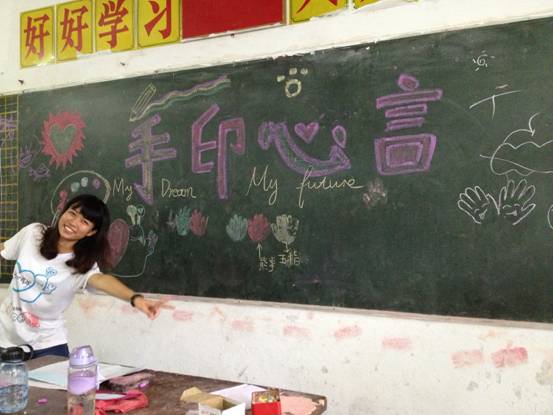 好好学习
手印心言
My Dream My future
五指